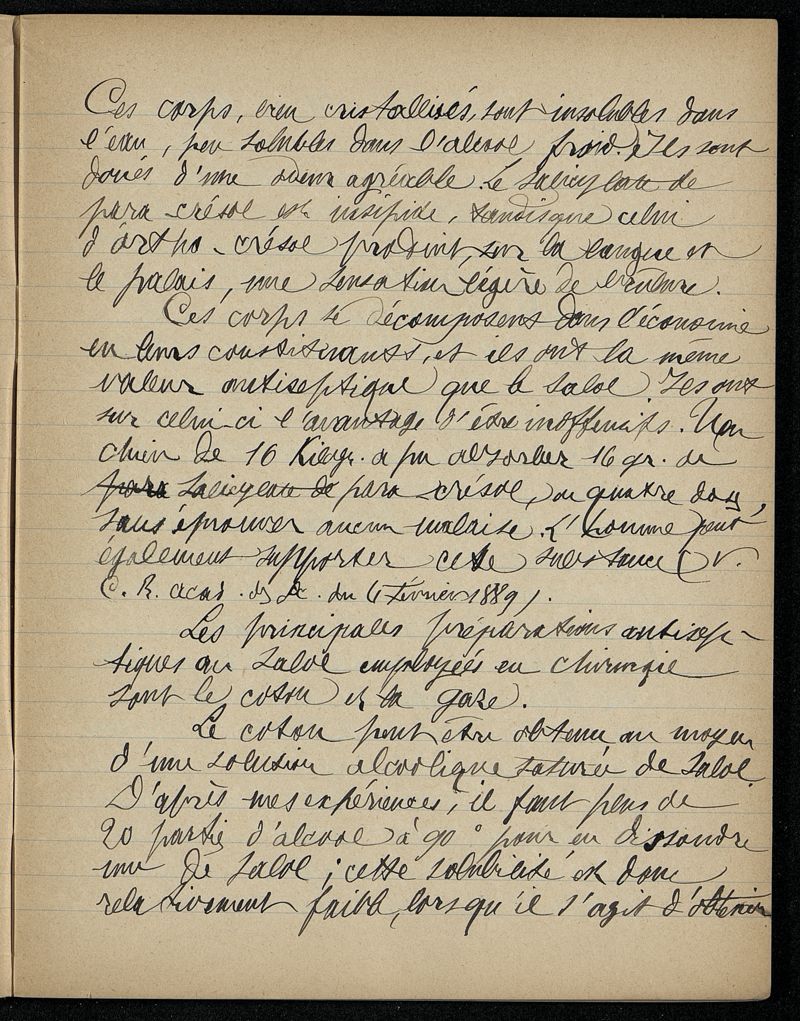 Ces corps, bien cristallisés, sont insolubles dans
l'eau, peu solubles dans l'alcool froid. Ils sont
doués d'une odeur agréable. Le salicylate de
para-crésol est insipide, tandisque celui
d'ortho-crésol produit, sur la langue et
le palais, une sensation légère de brûlure.
Ces corps se décomposent dans l'économie
en leurs constituants, et ils ont la même
valeur antiseptique que le salol. Ils ont
sur celui-ci l'avantage d'être inoffensifs. Un
chien de 10 Kilogr. a pu absorber 16 gr. de
para salicylate de para crésol, en quatre doses,
sans éprouver aucun malaise. L'homme peut
également supporter cette substance (V.
C. R. acad. des Sc. du 4 février 1889).
Les principales préparations antisep-
tiques au salol employées en chirurgie
sont le coton et la gaze.
Le coton peut être obtenu au moyen
d'une solution alcoolique saturée de salol.
D'après mes expériences, il faut plus de
20 parties d'alcool à 90° pour en dissoudre
une de salol; cette solubilité est donc
relativement faible, lorsqu'il s'agit d'obtenir